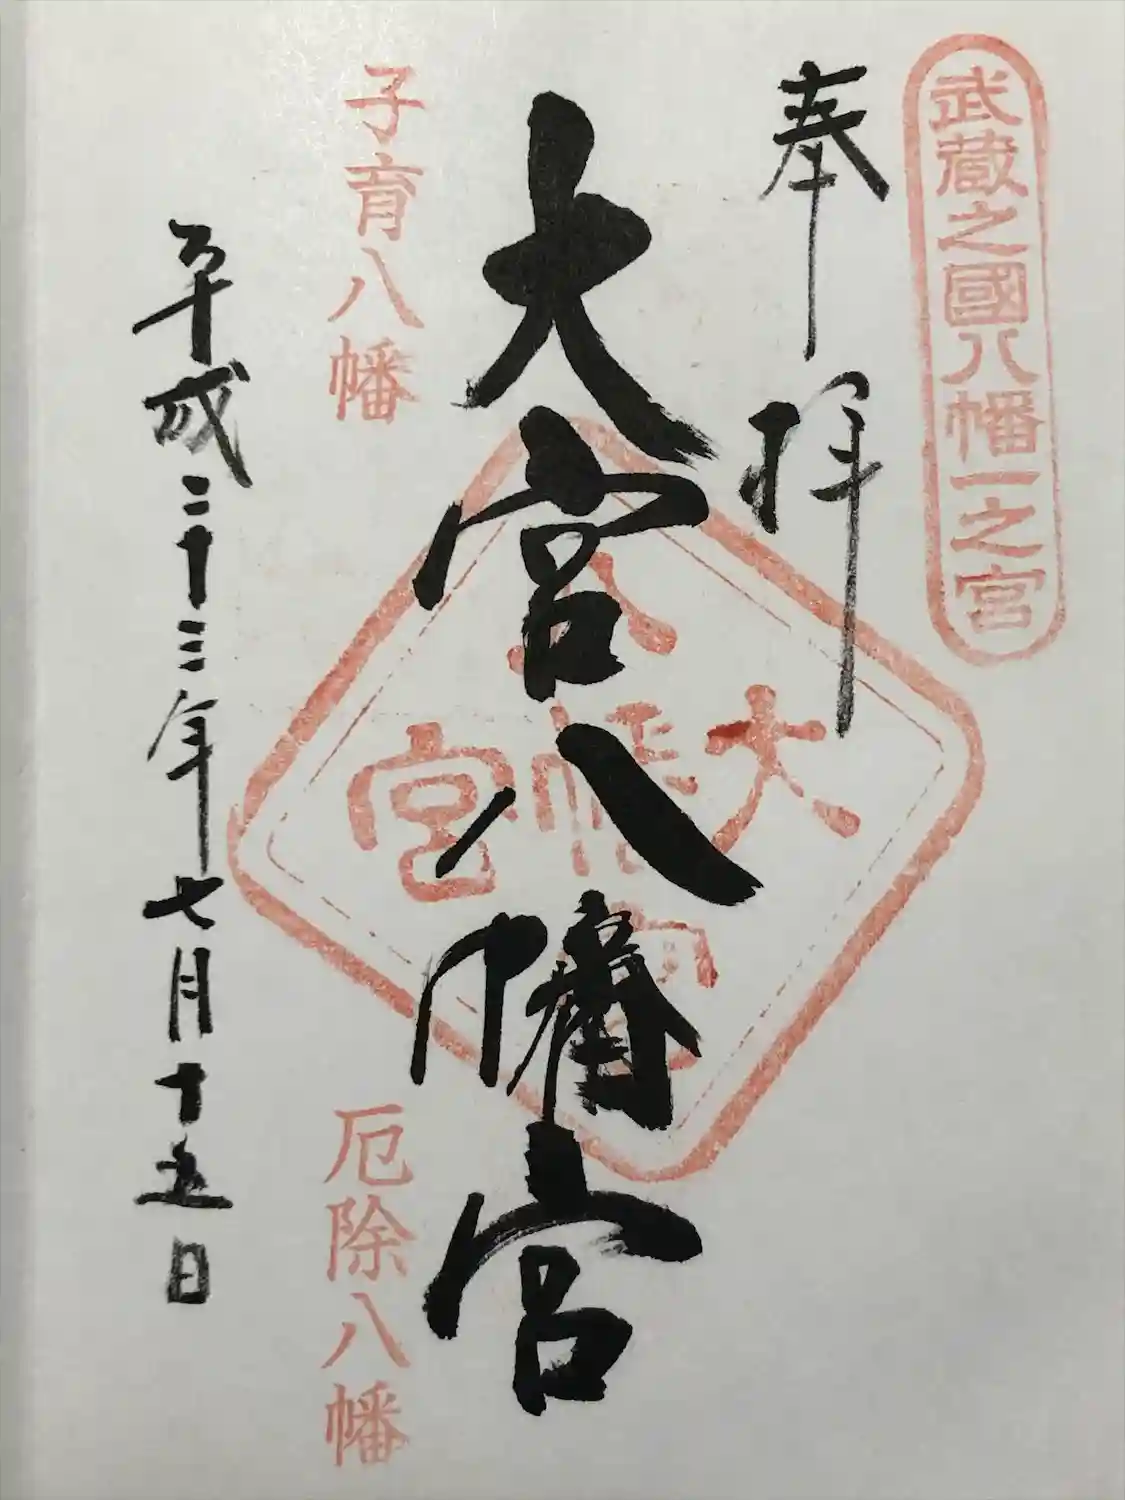 武蔵之國八幡一之宮
奉拝
大宮八幡宮
大
八幡宮
宮
子育八幡
厄除八幡
平成二十三年七月十五日